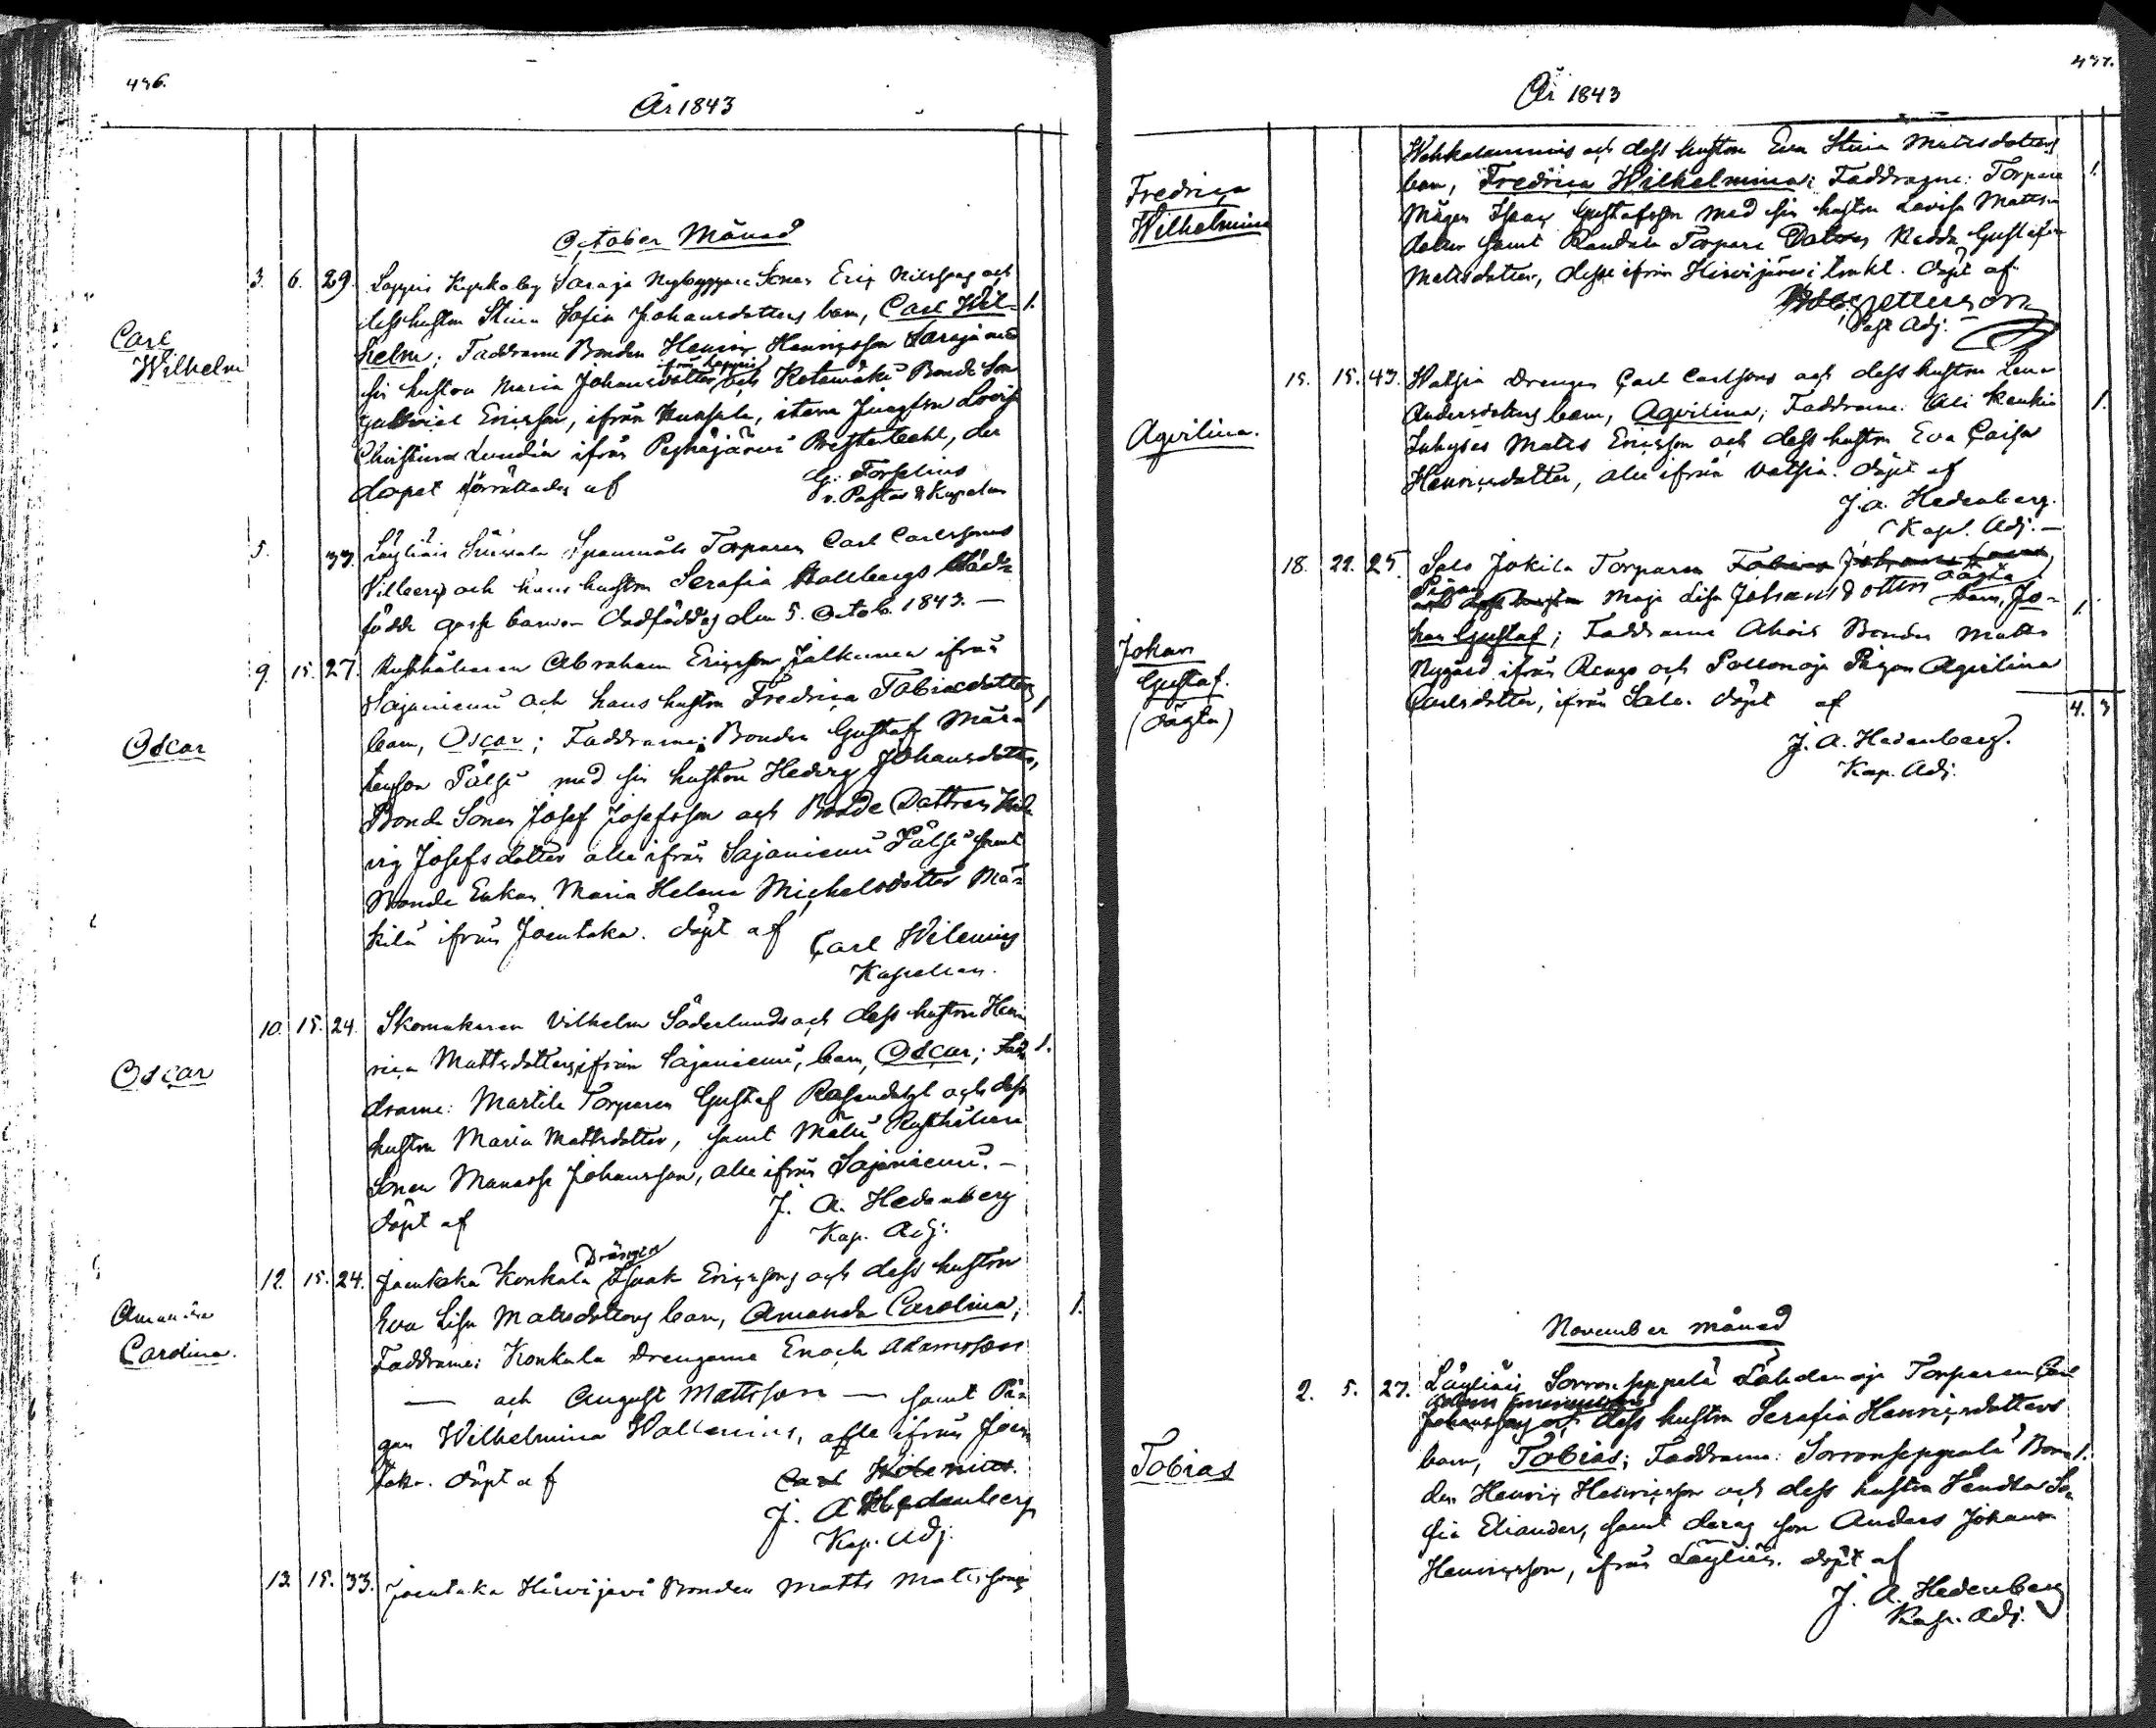 436.
År 1843
October Månad
3. 6. 29. Loppis Kyrkoby Saraja Nybyggare Sonen Eric Nilssons och
dess hustru Stina Sofia Johansdotters barn, Carl Wil- 1.
Carl
Wilhelm
helm; Faddrarne Bonden Henric Henricsson Saraja med
ifrån Loppis
sin hustru Maria Johansdotter, och Ketamäki Bonde Son
Gabriel Ericsson, ifrån Kunsula, item Jungfrun Lovis
Christina Lundén ifrån Pyhäjärvi Prestebohl, der
dopet förrättades af G: Forselius
v. Pastor & Kapelan
5. 33. Läyliäis Siuvala Spannmåls Torparen Carl Carlssons
Villberg och hans hustru Serafia Hallbergs
födde gosse barn Dödföddes den 5. Octob. 1843. —
9. 15. 27. Rusthållaren Abraham Ericsson Jälkunen ifrån
Sajaniemi och hans hustru Fredrica Tobiædotters 1
Oscar
barn, Oscar; Faddrarne: Bonden Gustaf Mår-
tensson Pälsi med sin hustru Hedvig Johansdotter,
Bonde Sonen Josef Josefsson och Bonde Dottren Hed-
vig Josefsdotter alle ifrån Sajaniemi Pälsi samt
Bonde Enkan Maria Helena Michelsdotter Mä-
kilä ifrån Joentaka. döpt af Carl Wilenius
Kapellan.
10. 15. 24. Skomakaren Vilhelm Söderlunds och dess hustru Hen-
rica Mattsdotters ifrån Sajaniemi, barn, Oscar; Fad- 1.
Oscar
drarne: Martila Torparen Gustaf Rosendahl och dess
hustru Maria Mattsdotter, samt Mälli Rusthållare
Sonen Manasse Johansson, alle ifrån Sajaniemi. —
döpt af J. A. Hedenberg
Kap. Adj.
Drängen
12. 15. 24. Joentaka Konkala Isaak Ericssons och dess hustru
Eva Lisa Mattsdotters barn, Amanda Carolina, 1.
Amanda
Carolina.
Faddrarne: Konkala Drengarne Enoch Adamsson
— och August Mattsson — samt Pi-
gan Wilhelmina Wallenius, alle ifrån Joen-
taka. döpt af Carl Wilenius.
J. A Hedenberg
Kap. Adj.
13. 15. 33. Joentaka Hirvijervi Bonden Matts Matssons
437.
År 1843
och dess hustru Eva Stina Matsdotters
Fredrica
Wilhelmina
barn, Fredrica Wilhelmina; Faddrarne: Torpare 1.
Mågen Isaac Gustafsson med sin hustru Lovisa Matts-
dotter samt Torpare Dotren Hedda Gustafva
Matsdotter, desse ifrån Hirvijärvi i Tenhl. döpt af
Pettersson
Past Adj.
15. 15. 43. Watsia drengen Carl Carlssons och dess hustru Lena
Andersdotters barn, Aqvilina, Faddrarne: Ali Kenkiä 1.
Aqvilina.
Inhyses Matts Ericsson och dess hustru Eva Caisa
Henricsdotter, alle ifrån Vatsia. döpt af
J. A. Hedenberg.
Kapl. Adj. —
18. 22. 25. Salo Jokila Torparen Tobias
Pigan oägta
Maja Lisa Johansdotters barn, Jo- 1.
Johan
Gustaf.
(oägta)
han Gustaf; Faddrarne Ahois Bonden Matts
Nygård ifrån Renge och Pollenoja Pigan Aqvilina
Carlsdotter, ifrån Salo. döpt af 4. 3
J. A. Hedenberg.
Kap. Adj.
November månad
2. 5. 27. Läyliäis Sorronseppälä Lähdenoja Torparen Carl
Johansson och dess hustru Serafia Henricsdotters
Tobias
barn, Tobias; Faddrarne: Sorronseppälä Bon- 1.
den Henric Henricsson och dess hustru Vendla So-
fia Eliander, samt deras son Anders Johan
Henricsson, ifrån Läyliäis. döpt af
J. A. Hedenberg
Kapl. Adj.